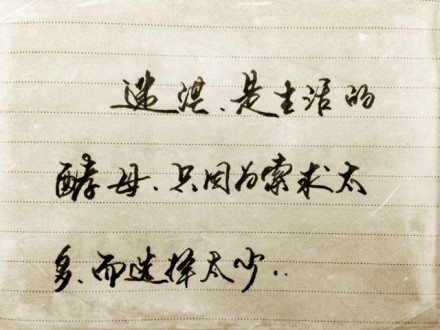 迷、是生活的
酵母、只因为索求太
多、而选择太少..